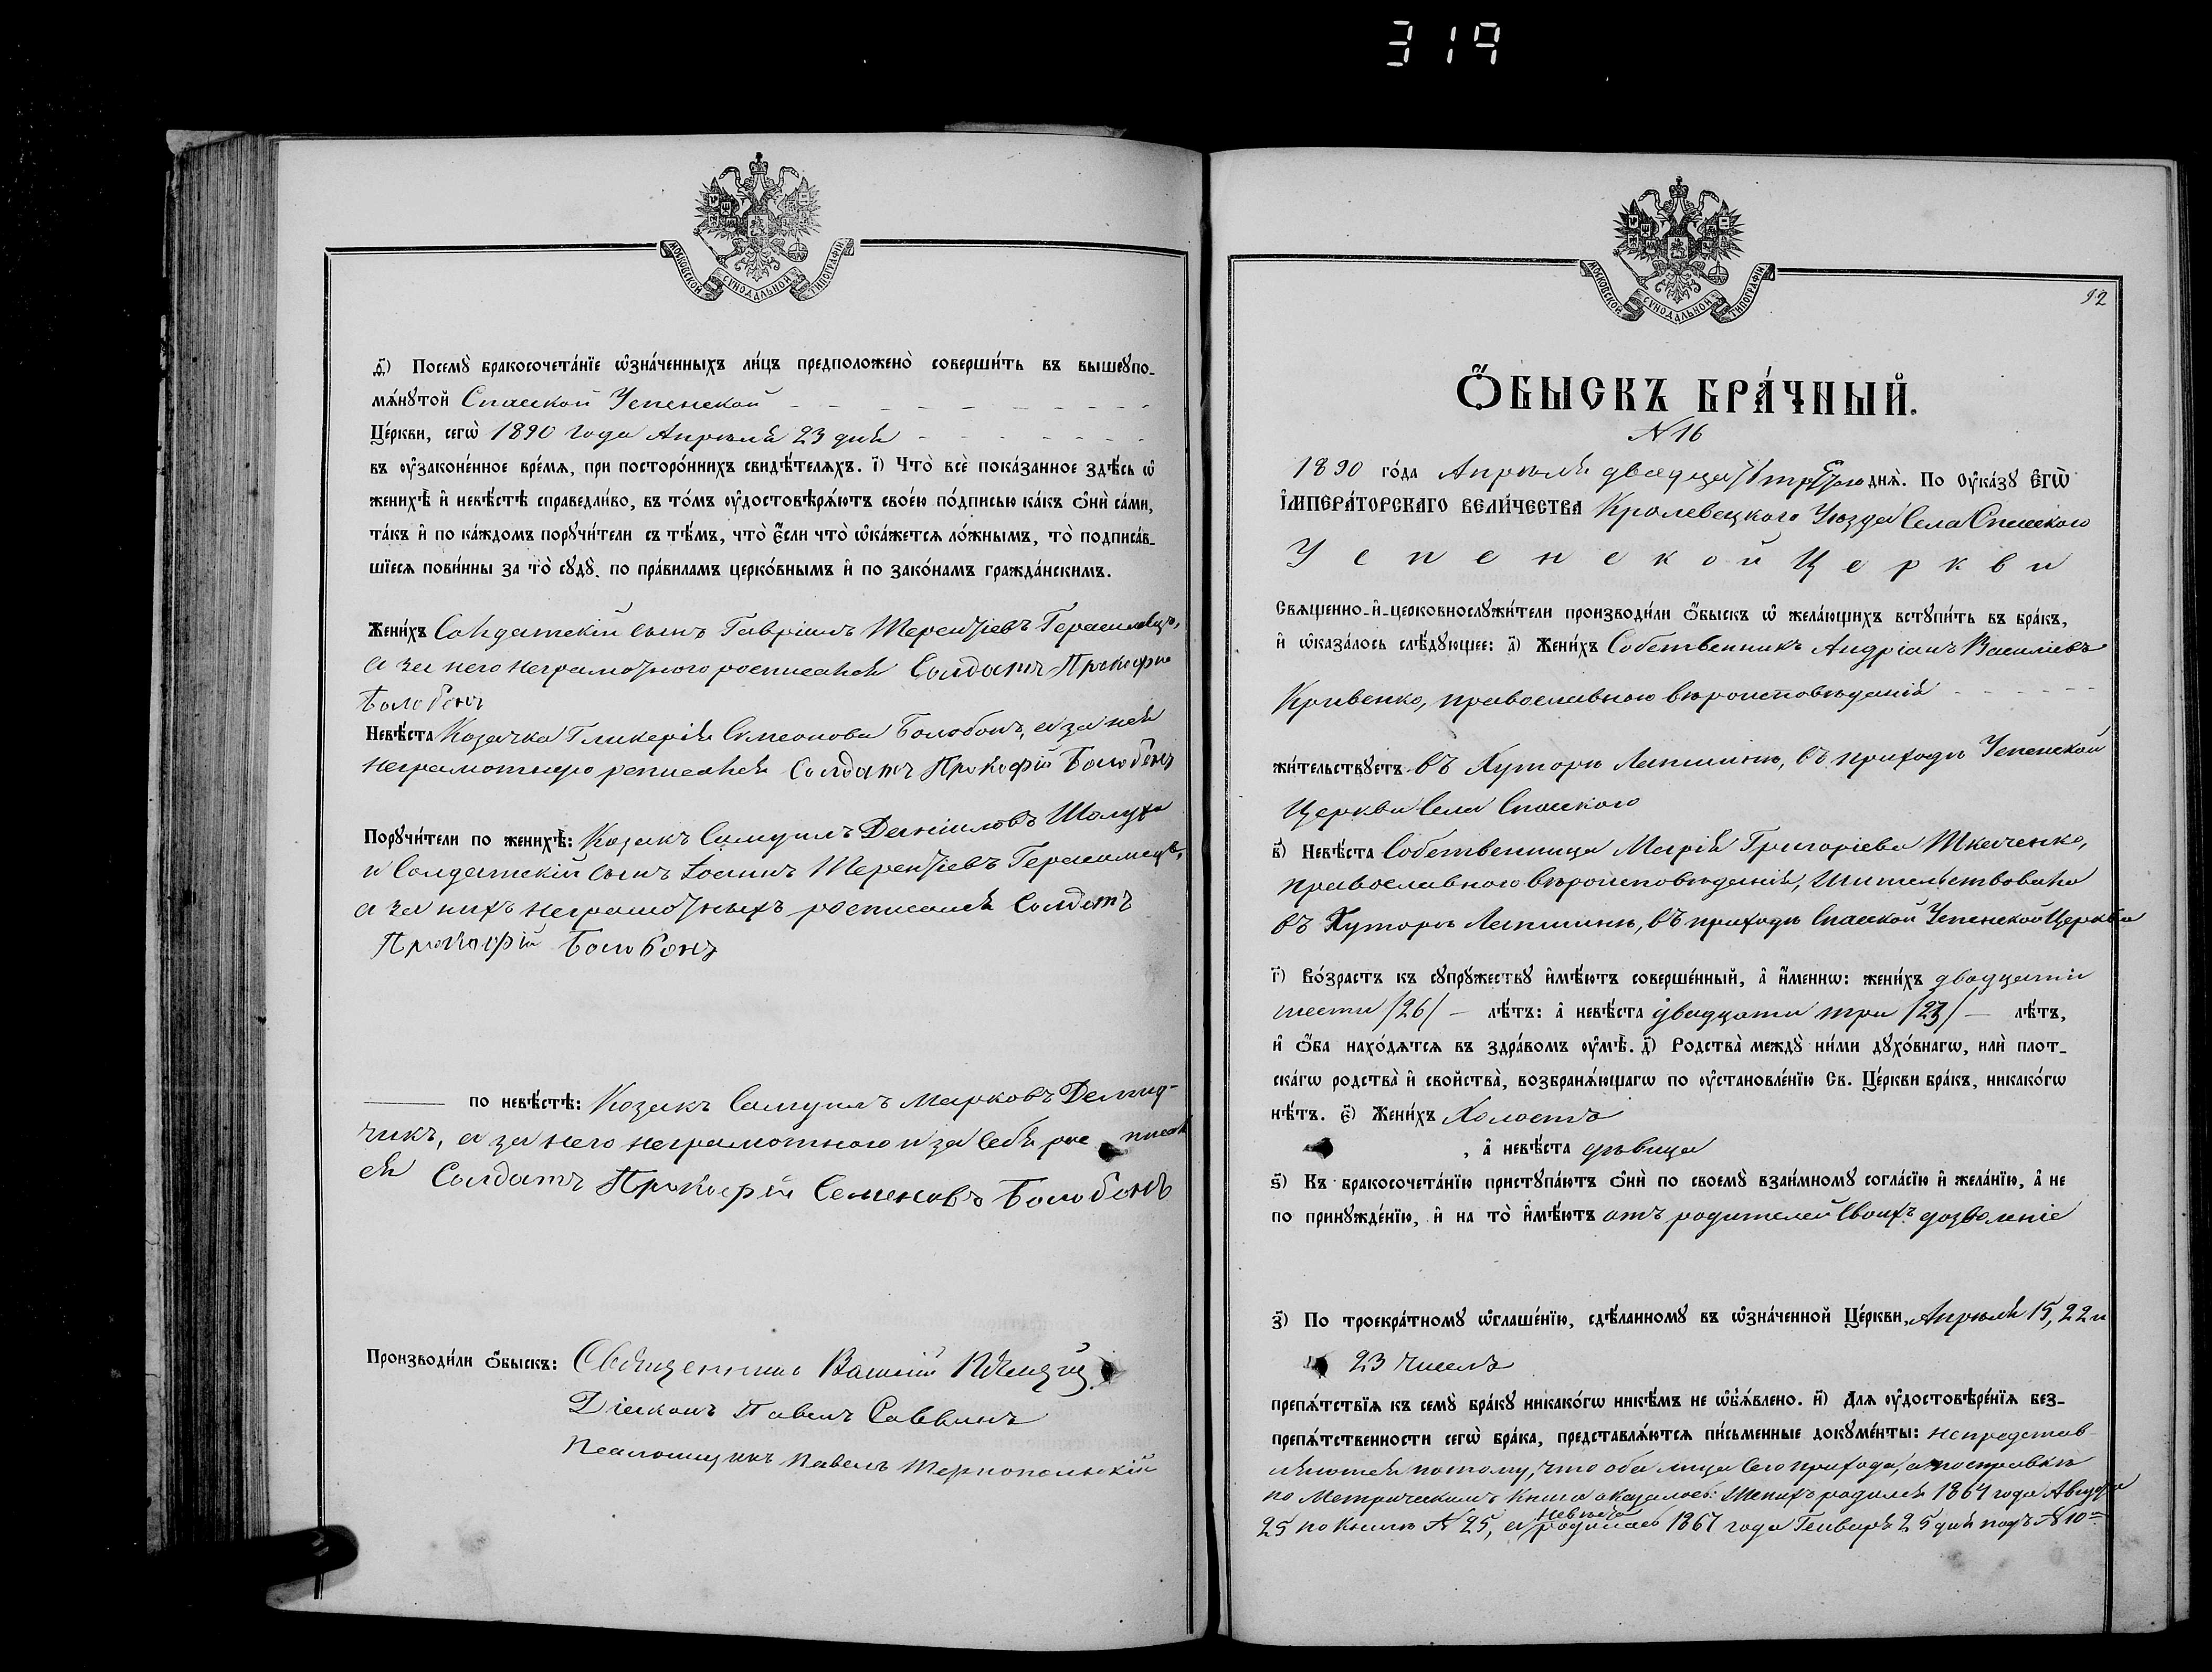 319
МОСКОВСКОЙ СУНОДАЛЬНОЙ ТИПОГРАФІИ
ѳ҃) Посемꙋ̀ бракосочета́нїе ѡ҆зна́ченныхъ ли́цъ предположено̀ соверши́ть въ вышеꙋпо-
мѧ́нꙋтой Спасской Успенской
Це́ркви, сегѡ̀ 1890 года Апрѣля 23 дня
въ ᲂу҆законе́нное вре́мѧ, при посторо́ннихъ свидѣ́телѧхъ. і҃) Что̀ всѐ пока́занное здѣ́сь ѡ҆
женихѣ̀ и҆ невѣ́стѣ справедли́во, въ то́мъ ᲂу҆достовѣрѧ́ютъ свое́ю по́дписью ка́къ ѻ҆нѝ са́ми,
та́къ и҆ по ка́ждомъ порꙋчи́тели съ тѣ́мъ, что̀ є҆́сли что̀ ѡ҆ка́жетсѧ ло́жнымъ, то̀ подписа́в-
шїесѧ пови́нны за то̀ сꙋдꙋ̀ по пра́виламъ церко́внымъ и҆ по зако́намъ гражда́нскимъ.
Жени́хъ Солдатскій сынъ Гавріилъ Терентіевъ Герасимецъ,
а за него неграмотного росписался Солдатъ Прокофій
Болобонъ
Невѣ́ста Козачка Гликерія Симеонова Болобонъ, а за нея
неграмотную росписался Солдатъ Прокофій Болобонъ
Порꙋчи́тели по женихѣ̀: Козакъ Самуилъ Даніиловъ Шолуха
и Солдатскій сынъ Іоаннъ Терентіевъ Герасимецъ,
а за нихъ неграмотныхъ росписался Солдатъ
Прокофій Болобонъ
по невѣ́стѣ: Козакъ Самуилъ Марковъ Демид-
чикъ, а за него неграмотного и за себя рос писал
ся Солдатъ Прокофій Семеновъ Болобонъ
Производи́ли ѻ҆́быскъ: Священникъ Василій
Діаконъ Павелъ Саввинъ
Псаломщикъ Павелъ Тернопольскій
МОСКОВСКОЙ СУНОДАЛЬНОЙ ТИПОГРАФІИ
92
Ѻ҆́БЫСКЪ БРА́ЧНЫЙ.
N 16
1890 го́да Апрѣля двадцать третьяго днѧ̀. По Оука́зꙋ Є҆гѡ̀
І҆МПЕРА́ТОРСКАГО ВЕЛИ́ЧЕСТВА Кролевецкого Уѣзда Села Спасскаго
Успенской Церкви
Свѧщенно-и҆-церковнослꙋжи́тели производи́ли ѻ҆́быскъ ѡ҆ жела́ющихъ встꙋпи́ть въ бра́къ,
и҆ ѡ҆каза́лось слѣ́дꙋющее: а҃) Жени́хъ Собственникъ Андріанъ Василіевъ
Кривенко, православного вѣроисповѣданія
жи́тельствꙋетъ въ Хуторѣ Лапшинѣ, въ приходѣ Успенской
Церкви Села Спасского
в҃) Невѣ́ста Собственница Марія Григоріева Ткаченко,
православного вѣроисповѣданія, жительствовала
въ Хуторѣ Лапшинѣ, въ приходѣ Спасской Успенской Церкви
г҃) Во́зрастъ къ сꙋпрꙋ́жествꙋ и҆мѣ́ютъ соверше́нный, а҆ и҆́меннѡ: жени́хъ двадцати
шести /26/ — лѣ́тъ: а҆ невѣ́ста двадцати три /23/ — лѣ́тъ,
и҆ ѻ҆́ба нахо́дѧтсѧ въ здра́вомъ ᲂу҆мѣ̀. д҃) Родства̀ междꙋ̀ ни́ми дꙋхо́внагѡ, илѝ плот-
ска́гѡ родства̀ и҆ сво́йства, возбранѧ́ющагѡ по ᲂу҆становле́нїю Св. Це́ркви бра́къ, никако́гѡ
нѣ́тъ. є҃) Жени́хъ Холостъ
, а҆ невѣ́ста дѣвица
ѕ҃) Къ бракосочета́нїю пристꙋпа́ютъ ѻ҆нѝ по своемꙋ̀ взаи́мномꙋ согла́сїю и҆ жела́нїю, а҆ не
по принꙋжде́нїю, и҆ на то̀ и҆мѣ́ютъ отъ родителей своихъ дозволеніе
з҃) По троекра́тномꙋ ѡ҆глаше́нїю, сдѣ́ланномꙋ въ ѡ҆зна́ченной Це́ркви, Апрѣля 15, 22 и
23 числъ
препѧ́тствїѧ къ семꙋ̀ бра́кꙋ никако́гѡ никѣ́мъ не ѡ҆б̾ѧ́влено. и҃) Длѧ ᲂу҆достовѣре́нїѧ без-
препѧ́тственности сегѡ̀ бра́ка, представлѧ́ютсѧ пи́сьменные докꙋме́нты: не представ-
ляются потому, что оба лица сего прихода, а по справкѣ
по Метрическимъ книгамъ оказалось: Женихъ родился 1864 года Августа
25 по книгѣ N 25, а невѣста родилась 1867 года Генваря 25 дня подъ N 10